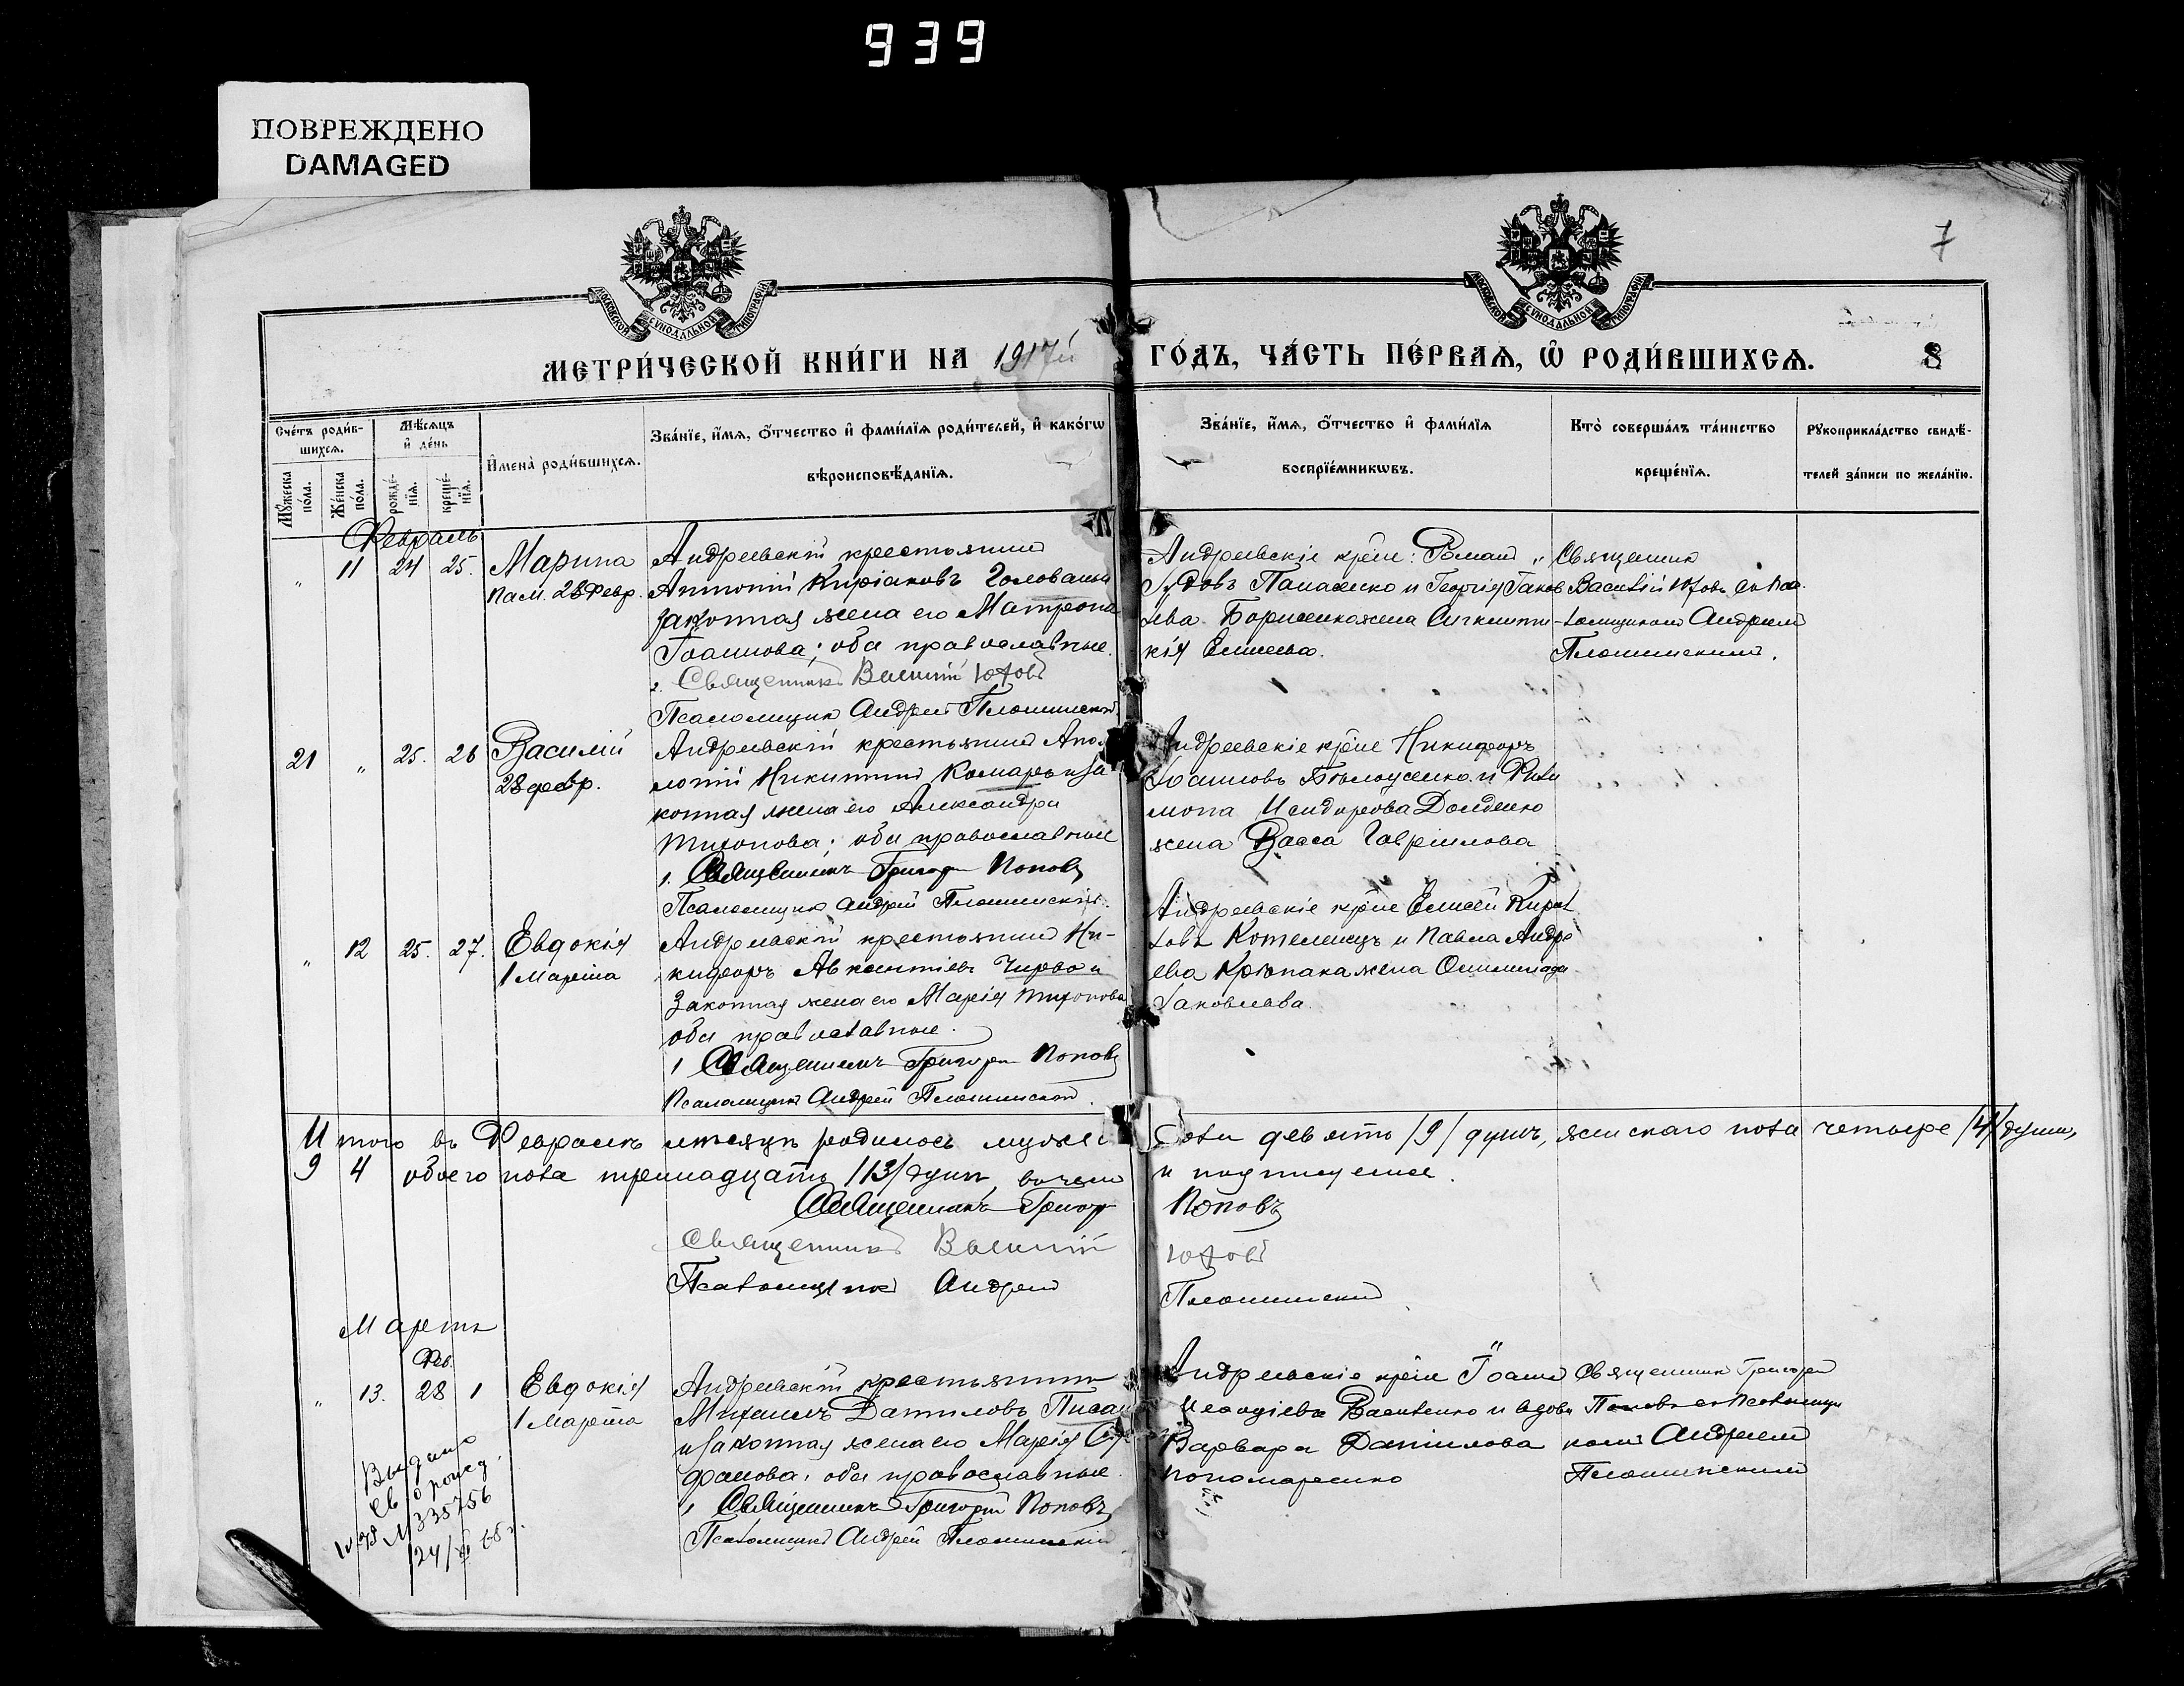 939
ПОВРЕЖДЕНО
DAMAGED
7
МОСКОВСКОЙ СѴНОДАЛЬНОЙ ТИПОГРАФІИ
МОСКОВСКОЙ СѴНОДАЛЬНОЙ ТИПОГРАФІИ
МЕТРИ́ЧЕСКОЙ КНИ́ГИ НА 1917й
ГО́ДЪ, ЧА́СТЬ ПЕ́РВАѦ, Ѡ҆ РОДИ́ВШИХСѦ.
8
Сче́тъ роди́в-
шихсѧ.
Мꙋ́жеска по́ла.
Же́нска по́ла.
Мѣ́сѧцъ и҆ де́нь
рожде́-нїѧ.
креще́-нїѧ.
И҆мена̀ роди́вшихсѧ.
Зва́нїе, и҆́мѧ, ѻ҆́тчество и҆ фами́лїѧ роди́телей, и҆ како́гѡ
вѣроисповѣ́данїѧ.
Зва́нїе, и҆́мѧ, ѻ҆́тчество и҆ фами́лїѧ
воспрїе́мникѡвъ.
Кто̀ соверша́лъ та́инство
креще́нїѧ.
Рꙋкоприкла́дство свидѣ́-
телей за́писи по жела́нїю.
Февраль
" 11 24 25. Марина
пам. 28 февр.
Андреевскій крестьянинъ
Антоній Киріаковъ
законная жена его Матрона
Іоаннова; оба православные.
Священникъ Василій Юговъ
Псаломщикъ Андрей Плошинскій
Андреевскіе кр-не: Романъ
Панасенко и Георгія Іаков
лева Борисенко жена
кія Елисеева.
Священник
Василій Юговъ съ Пса-
ломщикомъ Андреем
Плошинскимъ.
21 " 25. 26 Василій
28 февр.
Андреевскій крестьянинъ Апол
лоній Никитинъ Комаръ и за
конная жена его Александра
Тихонова; оба православные
1. Священникъ Григор Поповъ
Псаломщикъ Андрей Плошинскій.
Андреевскіе кр-не Никифоръ
Іоанновъ Бѣлоусенко и Фили
мона Исидорова Долденко
жена Васса Гавріилова
" 12 25. 27. Евдокія
1 Марта
Андреевскій крестьянинъ Ни-
кифоръ Авксентіевъ Чирва и
законная жена его Марія Тихонова
оба православные.
1 Священникъ Григори Поповъ
Псаломщикъ Андрей Плошинскій.
Андреевскіе кр-не Елисей Кирил
ловъ Котелевецъ и Павла Андре
ева жена
Іаковлева.
Итого въ Февралѣ мѣсяцѣ родилось мужск пола девять /9/ душъ, женскаго пола четыре /4/ души,
9 4 обоего пола тринадцать /13/ душъ, въ чемъ и подписуемся.
Священникъ Григор Поповъ
Священникъ Василій Юговъ
Псаломщикъ Андрей Плошинскій
Мартъ
Фев.
" 13. 28 1 Евдокія
1 Марта
Андреевскій крестьянинъ
Михаилъ Даниловъ Писан
и законная жена его Марія
фанова; оба православные.
1 Священникъ Григорій Поповъ
Псаломщикъ Андрей Плошинскій
Андреевскіе кр-не Іоаннъ
Меѳодіевъ Василенко и вдова
Варвара Данилова
Пономаренко
Священник Григорій
Поповъ съ Псаломщи
комъ Андреем
Плошинскимъ
Выдано
св о рожд.
№ 335756